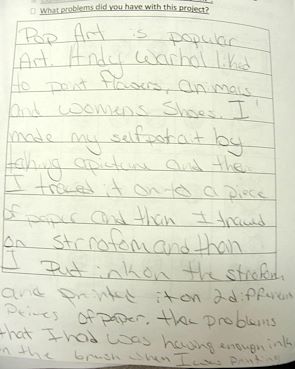 What problems did you have with this project?
Pop Art is popular
Art. Andy Warhol liked
to paint flowers, animals
and womens shoes. I
made my selfpotrait by
taking apicture and the
I traced it on to a piece
of paper and than I traced
on strrofom and than
I Put ink on the strofom
and printed it on 2 different
Peices of paper. the problems
that I had was having enough ink
on the brush when I was printing